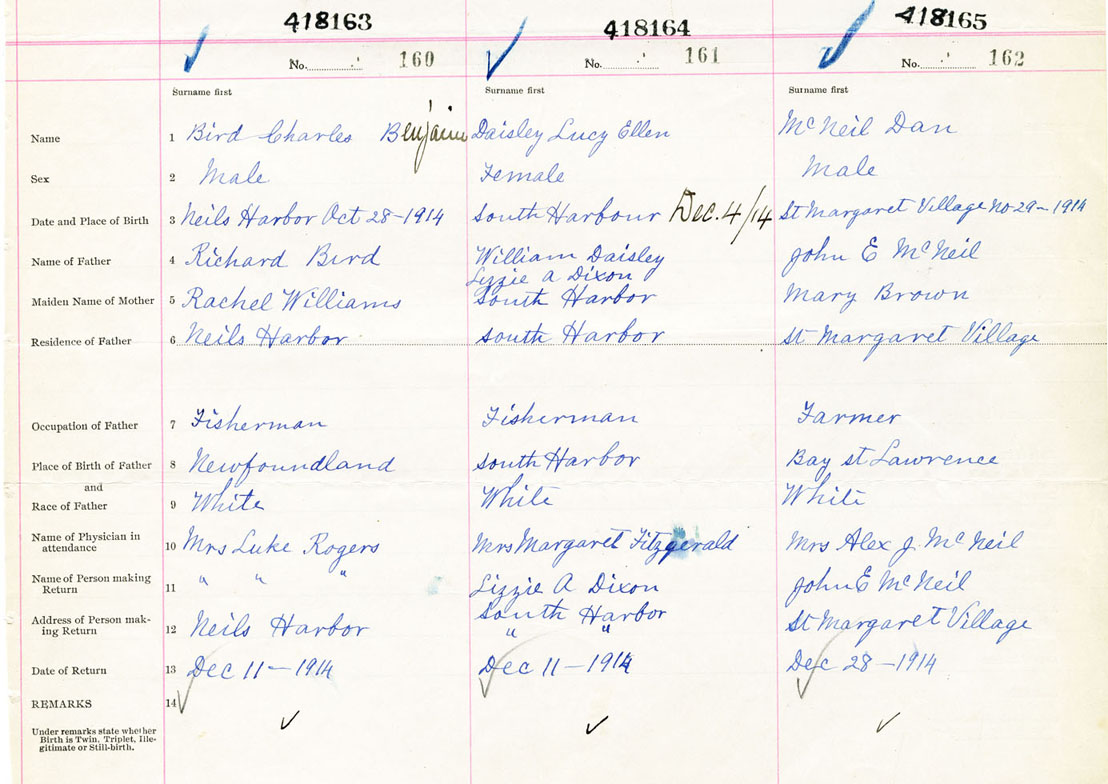 418163 418164 418165
No. 160 No. 161 No. 162
Surname first Surname first Surname first
Name 1 Bird Charles Benjamin Daisley Lucy Ellen McNeil Dan
Sex 2 Male Female Male
Date and Place of Birth 3 Neils Harbor Oct 28-1914 South Harbour Dec. 4/14 St Margaret Village No 29-1914
Name of Father 4 Richard Bird William Daisley John E McNeil
Lizzie A Dixon
Maiden Name of Mother 5 Rachel Williams South Harbor Mary Brown
Residence of Father 6 Neils Harbor South Harbor St Margaret Village
Occupation of Father 7 Fisherman Fisherman Farmer
Place of Birth of Father 8 Newfoundland South Harbor Bay St Lawrence
and
Race of Father 9 White White White
Name of Physician in
attendance 10 Mrs Luke Rogers Mrs Margaret Fitzgerald Mrs Alex J. McNeil
Name of Person making
Return 11 " " " Lizzie A Dixon John E McNeil
Address of Person mak-
ing Return 12 Neils Harbor South Harbor St Margaret Village
" "
Date of Return 13 Dec 11-1914 Dec 11-1914 Dec 28-1914
REMARKS 14
Under remarks state whether
Birth is Twin, Triplet, Ille-
gitimate or Still-birth.